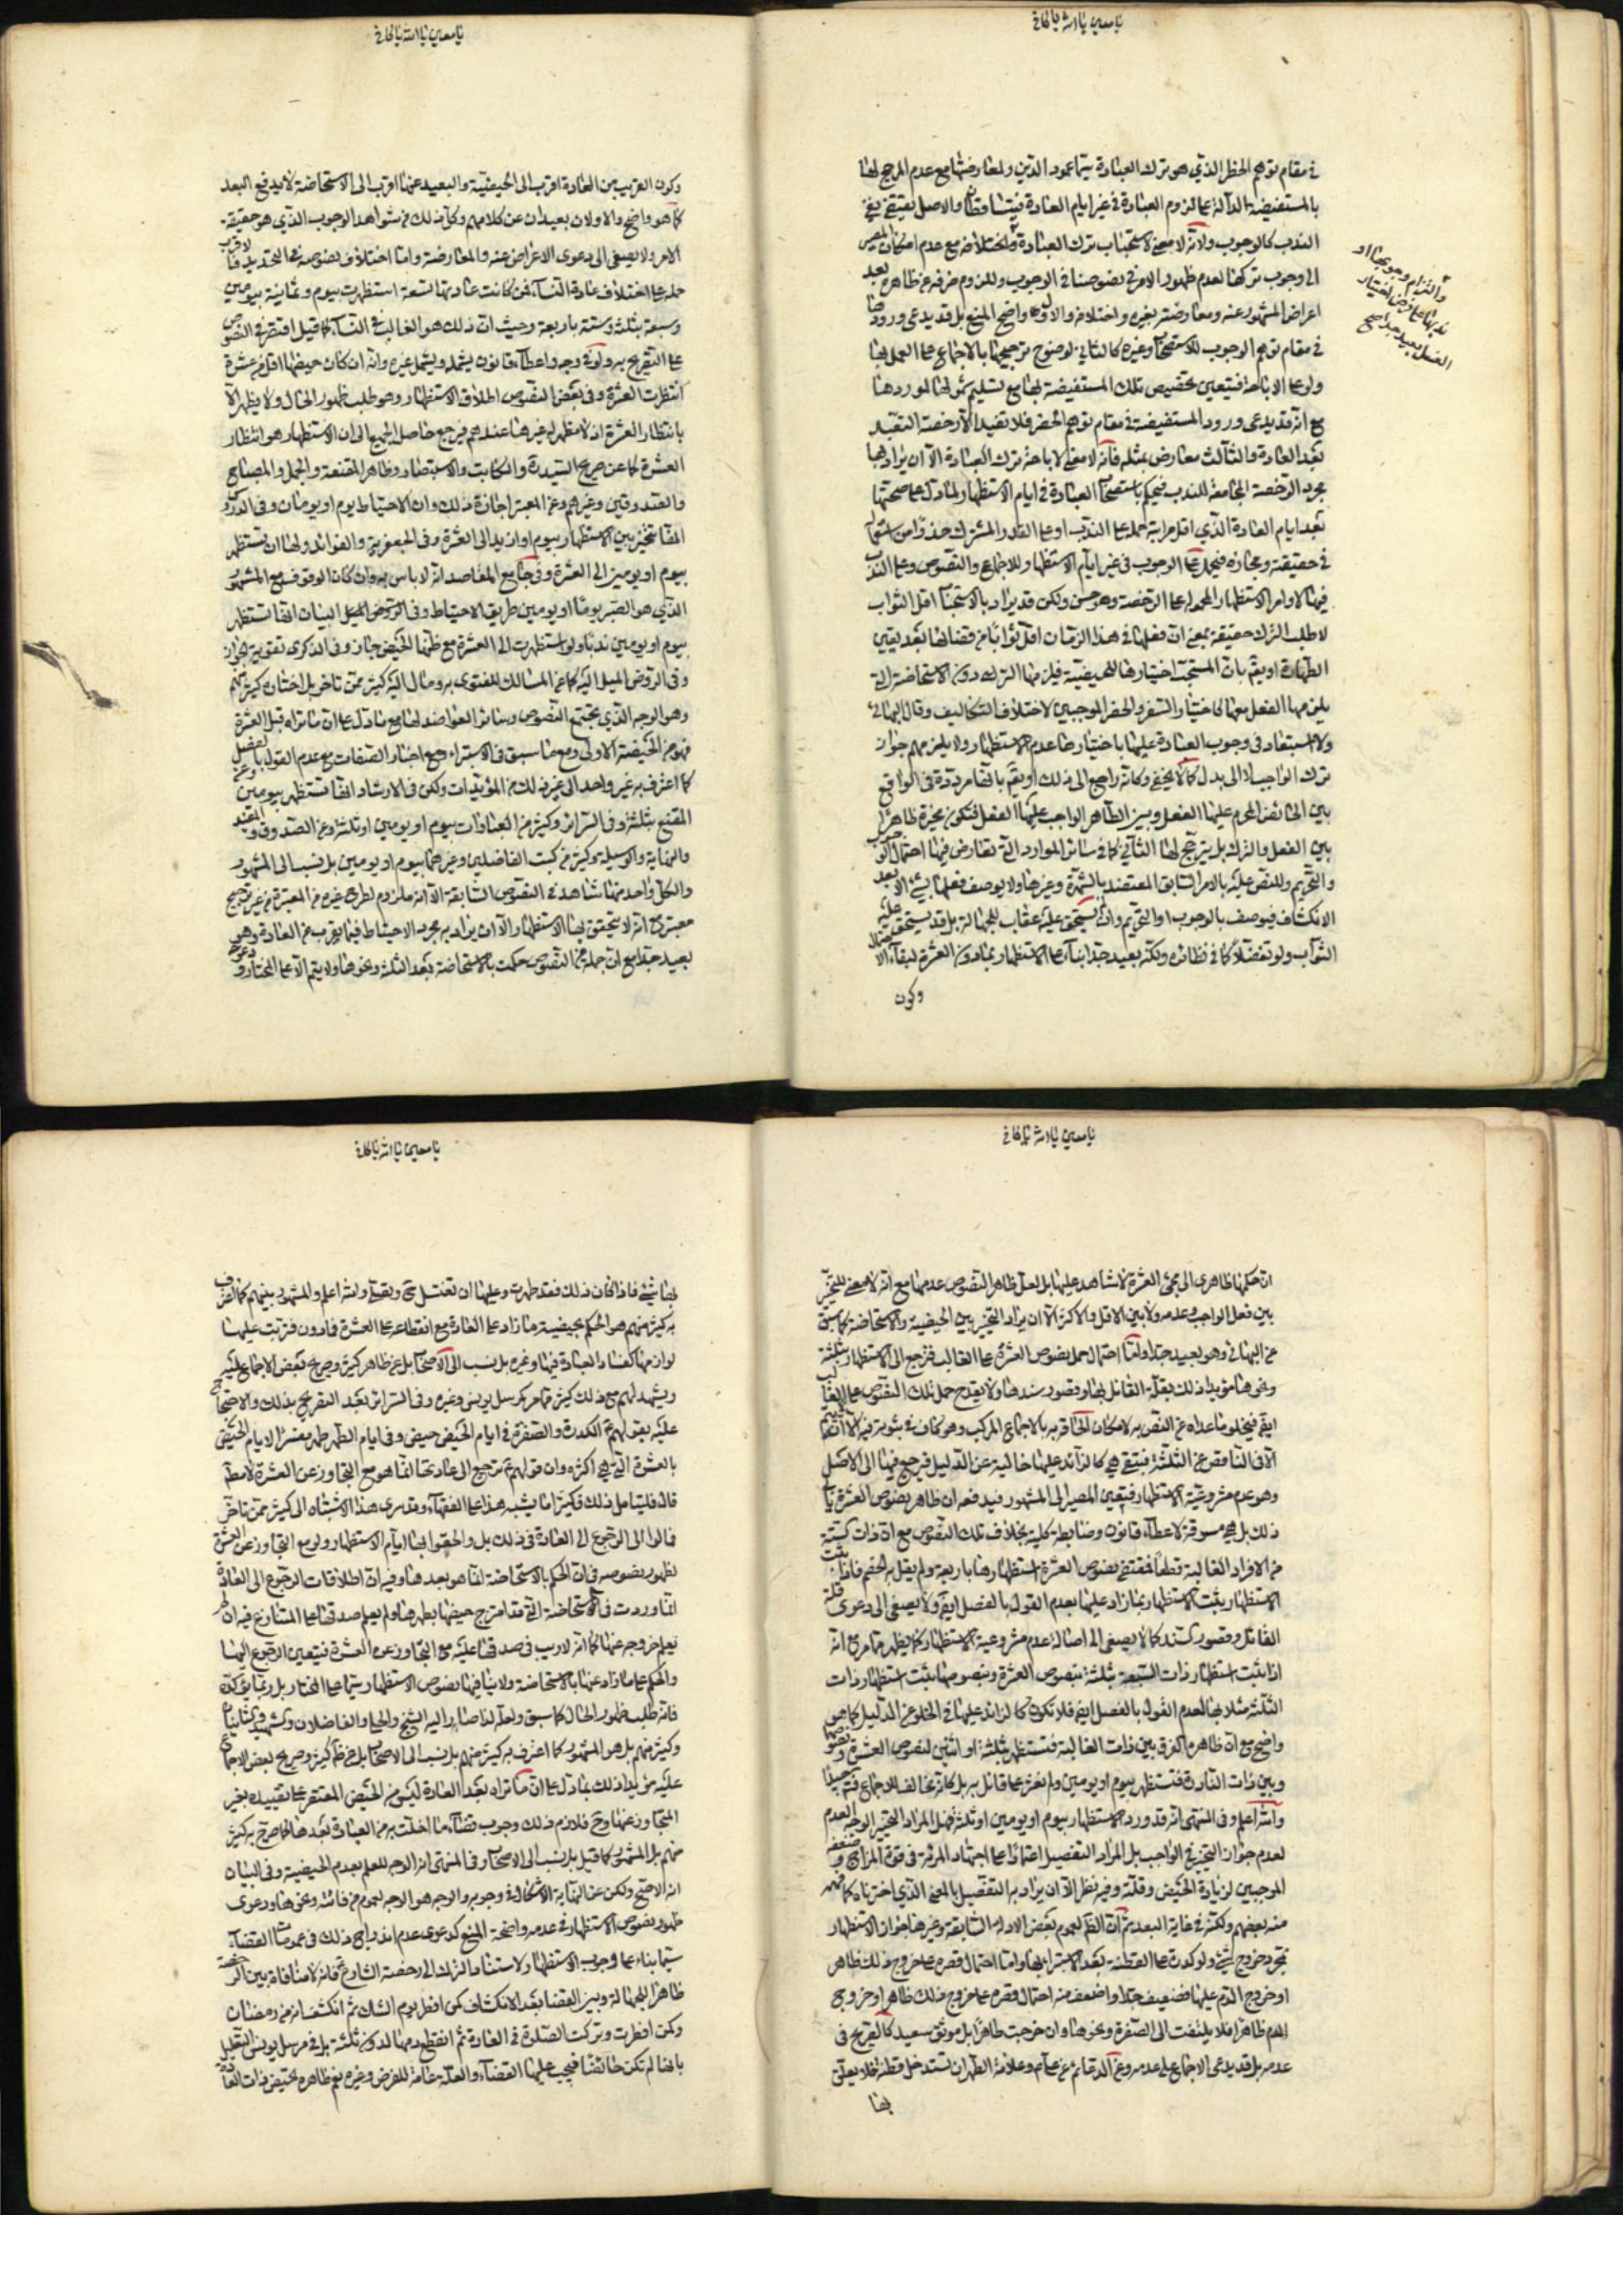 يا معين يا الله يا كافي
في مقام توهم الحظر الذي هو ترك العبادة سيما عمود الدين ولمعارضتها مع عدم المرجح لها
بالمستفيضة الدالة على لزوم العبادة في غير ايام العادة فيتساقطان والاصل يقتضي نفي
الندب كالوجوب ولانه لا معنى لاستحباب ترك العبادة ولاختلافه مع عدم امكان المصير
الى وجوب تركها لعدم ظهور الامر في نصوصنا في الوجوب وللزوم صرفه عن ظاهره بعد
اعراض المشهور عنه ومعارضته بغيره واختلافه والاول واضح المنع بل قد يدعى ورودها
في مقام توهم الوجوب للاستصحاب وغيره كالثاني لوضوح ترجيحها بالاجماع على العمل بها
ولو على الاباحة فيتعين تخصيص تلك المستفيضة بها مع تسليم شمولها لموردها
مع انه قد يدعى ورود المستفيضة في مقام توهم الحظر فلا تفيد الا رخصة التعبد
بعد العادة والثالث معارض بمثله فانه لا معنى لاباحة ترك العبادة الا ان يراد بها
مجرد الرخصة الجامعة للندب فيحكم باستصحاب العبادة في ايام الاستظهار لما دل على صحتها
بعد ايام العادة الذي اقل مراتبه حمله على الندب او على القدر المشترك حذرا من استعماله
في حقيقته ومجازه فيحمل على الوجوب في غير ايام الاستظهار للاجماع والنصوص وعلى الندب
فيها لاوامر الاستظهار المحمولة على الرخصة وهو حسن ولكن قد يراد بالاستحباب اقل الثواب
لا طلب الترك حقيقة بمعنى ان فعلها في هذا الزمان اقل ثوابا من قضائها بعد يقين
الطهارة او يقم بان المستحب اختيارها للحيضية فيلزمها الترك دون الاستحاضة التي
يلزمها الفعل معها كاختيار السفر والحضر الموجبين لاختلاف التكاليف وقال البهائي
ولا استبعاد في وجوب العبادة عليها باختيارها عدم الاستظهار ولا يلزمهم جواز
ترك الواجب لا الى بدل كما لا يخفى وكانه راجع الى ذلك او يقم بانها مرددة في الواقع
بين الحائض المحرم عليها الفعل وبين الطاهر الواجب عليها الفعل فتكون مخيرة ظاهرا
بين الفعل والترك بل يترجح لها الثاني كما في سائر الموارد التي تعارض فيها احتمال الوجوب
والتحريم وللنص عليه بالامر السابق المعتضد بالشهرة وغيرها ولا يوصف فعلها بشيء الا بعد
الانكشاف فيوصف بالوجوب او التحريم وان لم يستحق عليه عقاب للجهالة بل قد يستحق عليه
الثواب ولو تفضلا كما في نظائره ولكنه بعيد جدا بناء على الاستظهار بما دون العشرة لبقاء الاحتمال
وكون
والتزام وجوبها او
ندبها على فرض اختيار
الغسل بعيد جدا صح
يا معين يا الله يا كافي
وكون القريب من العادة اقرب الى الحيضية والبعيد عنها اقرب الى الاستحاضة لا يدفع البعد
كما هو واضح والاولان بعيدان عن كلامهم وكل ذلك من شواهد الوجوب الذي هو حقيقة
الامر ولا يصغى الى دعوى الاعراض عنه والمعارضة واما اختلاف نصوصه في التحديد فالاقرب
حمله على اختلاف عادة النساء فمن كانت عادتها تسعة استظهرت بيوم وثمانية بيومين
وسبعة بثلثة وستة باربعة وحيث ان ذلك هو الغالب في النساء كما قيل اقتصر في النصوص
على التصريح به ولو في وجه واعطاء قانون يشمله ويشمل غيره وانه ان كان حيضها اقل من عشرة
انتظرت العشرة وفي بعض النصوص اطلاق الاستظهار وهو طلب ظهور الحال ولا يظهر الا
بانتظار العشرة اذ لا مظهر له غيرها عندهم فيرجع حاصل الجميع الى ان الاستظهار هو انتظار
العشرة كما عن صريح السيد والكاتب والاستبصار وظاهر المقنعة والجمل والمصباح
والصدوقين وغيرهم وعن المعتبر اجازة ذلك وان الاحتياط يوم او يومان وفي الذكرى
انها تتخير بين الاستظهار بيوم او ازيد الى العشرة وفي الجعفرية والفوائد ولها ان تستظهر
بيوم او يومين الى العشرة وفي جامع المقاصد انه لا باس به وان كان الوقوف مع المشهور
الذي هو الصبر يوما او يومين طريق الاحتياط وفي الروض كالبيان انها تستظهر
بيوم او يومين ندبا ولو استظهرت الى العشرة مع ظنها الحيض جاز وفي الذكرى تقوية الجواز
وفي الروض الميل اليه كما عن المسالك المفتوى به ومال اليه كثير ممن تاخر بل اختاره كثير منهم
وهو الوجه الذي يجتمع النصوص وسائر القواعد لها مع ما دل على ان ما تراه قبل العشرة
فهو من الحيضة الاولى ومع ما سبق في الاستبراء مع اخبار الصفات مع عدم القول بالفصل
كما اعترف به غير واحد الى غير ذلك من المؤيدات ولكن في الارشاد انها تستظهر بيومين وعن
المقنع بثلثة وفي السرائر وكثير من العبارات بيوم او يومين او ثلثة وعن الصدوق والمفيد
والنهاية والوسيلة وكثير من كتب الفاضلين وغيرهما بيوم او يومين بل نسب الى المشهور
والكل واحد منها شاهد في النصوص السابقة الا انه ملزوم لطرح غيره من المعتبرة من غير ترجيح
معتبر مع انه لا يتحقق بها الاستظهار الا ان يراد به مجرد الاحتياط فيما يقرب من العادة وهو
بعيد جدا مع ان جملة من النصوص حكمت بالاستحاضة بعد الثلثة ونحوها ولا يتم الا على المختار ودعوى
يا معين يا الله يا كافي
ان حكمها ظاهري الى مجيء العشرة لا شاهد عليها بل لعل ظاهر النصوص عدمها مع انه لا معنى للتخيير
بين فعل الواجب وعدمه ولا بين الاقل والاكثر الا ان يراد التخيير بين الحيضية والاستحاضة كما سبق
عن البهائي وهو بعيد جدا واما احتمال حمل نصوص العشرة على الغالب فترجع الى الاستظهار بثلثة
ونحوها مؤيدا ذلك بقلة القائل بها وقصور سندها ولا يقدح حمل تلك النصوص على الغالب
ايضم فيخلو ما عداه عن النص به لامكان الحاقه به بالاجماع المركب وهو كاف في ثبوته فيه لا انه لا يتم
الا في الناقص عن الثلثة فتبقى هي كالزائد عليها خالية عن الدليل فيرجع فيها الى الاصل
وهو عدم مشروعية الاستظهار فيتعين المصير الى المشهور فيدفعه ان ظاهر نصوص العشرة يابى
ذلك بل هي مسوقة لاعطاء قانون وضابطة كلية بخلاف تلك النصوص مع ان ذات الستة
من الافراد الغالبة قطعا فمقتضى نصوص العشرة استظهارها باربعة ولم يقل به الخصم فاذا ثبت
الاستظهار يثبت الاستظهار بما زاد عليها بعدم القول بالفصل ايضم ولا يصغى الى دعوى قلة
القائل وقصور السند كما لا يصغى الى اصالة عدم مشروعية الاستظهار كما يظهر مما مر مع انه
اذا ثبت استظهار ذات السبعة بثلثة بنصوص العشرة وبنصوصها يثبت استظهار ذات
الثلثة مثلا بها لعدم القول بالفصل ايضم فلا تكون كالزائد عليها في الخلو عن الدليل كما هو
واضح مع ان ظاهره الفرق بين ذات الغالبة فتستظهر بثلثة او اثنين لنصوص العشرة ونصوصها
وبين ذات النادرة فتستظهر بيوم او يومين ولم نعثر على قائل به بل كانه مخالف للاجماع فتم جيدا
والله اعلم وفي المنتهى انه قد ورد الاستظهار بيوم او يومين او ثلثة فهل المراد التخيير الوجه العدم
لعدم جواز التخيير في الواجب بل المراد التفصيل اعتمادا على اجتهاد المرئة في قوة المزاج وضعفه
الموجبين لزيادة الحيض وقلته وفيه نظر الا ان يراد به التفصيل بالمعنى الذي اخترناه كما فهمه
منه بعضهم ولكنه في غاية البعد ثم ان الظم لعموم بعض الادلة السابقة وغيرها جواز الاستظهار
بمجرد خروج شيء ولو كدرة على القطنة بعد الاستبراء بها واما احتمال قصره على خروج ذلك ظاهرا
او خروج الدم عليها فضعيف جدا واضعف منه احتمال قصره على خروج ذلك ظاهرا او خروج
الدم ظاهرا فلا يلتفت الى الصفرة ونحوها وان خرجت ظاهرا بل موثق سعيد كالصريح في
عدمه بل قد يدعى الاجماع على عدمه وعن الدعائم عنهم وعلامة الطهر ان تستدخل قطنة فلا يعلق
بها
يا معين يا الله يا كافي
بها شيء فاذا كان ذلك فقد طهرت وعليها ان تغتسل ح وتصلي والله اعلم والمشهور بينهم كما اعترف
به كثير منهم هو الحكم بحيضية ما زاد على العادة مع انقطاعه على العشرة فما دون فترتب عليها
لوازمها كفساد العبادة فيها وغيره بل نسب الى الاصحاب بل عن ظاهر كثير وصريح بعض الاجماع عليه
ويشهد لهم مع ذلك كثير مما مر كمرسل يونس وغيره وفي السرائر بعد التصريح بذلك والاحتجاج
عليه بقولهم عم الكدرة والصفرة في ايام الحيض حيض وفي ايام الطهر طهر مفسرا لايام الحيض
بالعشرة التي هي اكثره وان قولهم عم ترجع الى عادتها انما هو مع التجاوز عن العشرة لا مطم
قال فليتامل ذلك فكثيرا ما يشبه هذا على الفقهاء وقد سرى هذا الاشتباه الى كثير ممن تاخر
فمالوا الى الرجوع الى العادة في ذلك بل والحقوا بها ايام الاستظهار ولو مع التجاوز عن العشرة
لظهور نصوصه في ان الحكم بالاستحاضة انما هو بعدها وفيه ان اطلاقات الرجوع الى العادة
انما وردت في الاستحاضة التي قد امتزج حيضها بطهرها ولم يعلم صدقها على المتنازع فيه ان لم
نعلم خروجه عنها كما انه لا ريب في صدقها عليه مع التجاوز عن العشرة فيتعين الرجوع اليها
والحكم على ما زاد عنها بالاستحاضة ولا ينافيها نصوص الاستظهار سيما على المختار بل ربما يؤكده
فانه طلب ظهور الحال كما سبق ولعله لذا صار اليه الشيخ والحلي والفاضلان والشهيد
وكثير منهم بل هو المشهور كما اعترف به كثير منهم بل نسب الى الاصحاب بل عن ظم كثير وصريح بعض الاجماع
عليه مؤيدا ذلك بما دل على ان ما تراه بعد العادة ليس من الحيض المقتصر على تقييده بغير
المتجاوز عنها وح فلازم ذلك وجوب قضاء ما اخلت به من العبادة بعدها كما صرح به كثير
منهم بل المشهور كما قيل بل نسب الى الاصحاب وفي المنتهى انه الوجه للعلم بعدم الحيضية وفي البيان
انه الاصح ولكن عن النهاية الاشكال في وجوبه والوجه هو الاول لعموم من فاتته ونحوها ودعوى
ظهور نصوص الاستظهار في عدمه واضحة المنع كدعوى عدم اندراج ذلك في عمومات القضاء
سيما بناء على وجوب الاستظهار لاستناد الترك الى رخصة الشارع فانه لا منافاة بين الرخصة
ظاهرا للجهالة وبين القضا بعد الانكشاف كمن افطر يوم الشك ثم انكشف انه من رمضان
وكمن افطرت وتركت الصلوة في العادة ثم انقطع دمها لدون ثلثة بل في مرسل يونس التعليل
بانها لم تكن حائضا فيجب عليها القضاء والعلة عامة للفرض وغيره نعم ظاهره تحيض ذات العادة